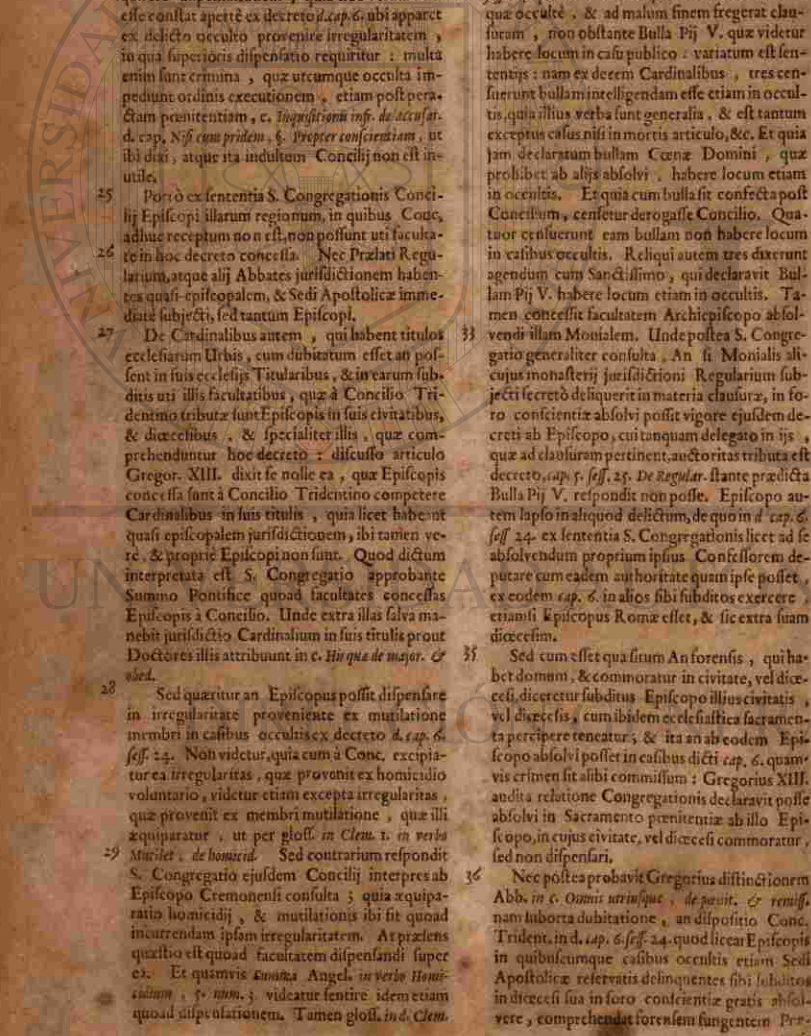 esse constat apertè ex decreto d. cap. 6. ubi apparet
ex delicto occulto provenire irregularitatem,
in qua superioris dispensatio requiritur: multa
enim sunt crimina, quæ utcumque occulta im-
pediunt ordinis executionem, etiam post pera-
ctam pœnitentiam, c. Inquisitionis infr. de accusat.
d. cap. Nisi cum pridem, §. Propter conscientiam, ut
ibi dixi, atque ita indultum Concilij non est in-
utile.
25 Porrò ex sententia S. Congregationis Conci-
lij Episcopi illarum regionum, in quibus Conc.
adhuc receptum non est, non possunt uti faculta-
26 te in hoc decreto concessa. Nec Prælati Regu-
larium, atque alij Abbates jurisdictionem haben-
tes quasi-episcopalem, & Sedi Apostolicæ imme-
diatè subjecti, sed tantum Episcopi.
27 De Cardinalibus autem, qui habent titulos
ecclesiarum Urbis, cum dubitatum esset an pos-
sent in suis ecclesijs Titularibus, & in earum sub-
ditis uti illis facultatibus, quæ à Concilio Tri-
dentino tributæ sunt Episcopis in suis civitatibus,
& diœcesibus, & specialiter illis, quæ com-
prehenduntur hoc decreto: discusso articulo
Gregor. XIII. dixit se nolle ea, quæ Episcopis
concessa sunt à Concilio Tridentino competere
Cardinalibus in suis titulis, quia licet habeant
quasi episcopalem jurisdictionem, ibi tamen ve-
rè, & propriè Episcopi non sunt. Quod dictum
interpretata est S. Congregatio approbante
Summo Pontifice quoad facultates concessas
Episcopis à Concilio. Unde extra illas salva ma-
nebit jurisdictio Cardinalium in suis titulis prout
Doctores illis attribuunt in c. His quæ de major. &
obed.
28 Sed quæritur an Episcopus possit dispensare
in irregularitate proveniente ex mutilatione
membri in casibus occultis ex decreto d. cap. 6.
sess. 24. Non videtur, quia cum à Conc. excipia-
tur ea irregularitas, quæ provenit ex homicidio
voluntario, videtur etiam excepta irregularitas,
quæ provenit ex membri mutilatione, quæ illi
æquiparatur, ut per gloss. in Clem. 1. in verbo
29 Mutilet, de homicid. Sed contrarium respondit
S. Congregatio ejusdem Concilij interpres ab
Episcopo Cremonensi consulta; quia æquipa-
ratio homicidij, & mutilationis ibi fit quoad
incurrendam ipsam irregularitatem. At præsens
quæstio est quoad facultatem dispensandi super
ea. Et quamvis summa Angel. in verbo Homi-
cidium, §. num. 3. videatur sentire idem etiam
quoad dispensationem. Tamen gloss. in d. Clem.
quæ occultè, & ad malum finem fregerat clau-
suram, non obstante Bulla Pij V. quæ videtur
habere locum in casu publico: variatum est sen-
tentijs: nam ex decem Cardinalibus, tres cen-
suerunt bullam intelligendam esse etiam in occul-
tis, quia illius verba sunt generalia, & est tantum
exceptus casus nisi in mortis articulo, &c. Et quia
jam declaratum bullam Cœnæ Domini, quæ
prohibet ab alijs absolvi, habere locum etiam
in occultis. Et quia cum bulla sit confecta post
Concilium, censetur derogasse Concilio. Qua-
tuor censuerunt eam bullam non habere locum
in casibus occultis. Reliqui autem tres dixerunt
agendum cum Sanctissimo, qui declaravit Bul-
lam Pij V. habere locum etiam in occultis. Ta-
men concessit facultatem Archiepiscopo absol-
33 vendi illam Monialem. Unde postea S. Congre-
gatio generaliter consulta, An si Monialis ali-
cujus monasterij jurisdictioni Regularium sub-
jecti secretò deliquerit in materia clausuræ, in fo-
ro conscientiæ absolvi possit vigore ejusdem de-
creti ab Episcopo, cui tanquam delegato in ijs,
quæ ad clausuram pertinent, auctoritas tributa est
decreto, cap. 5. sess. 25. De Regular. stante prædicta
Bulla Pij V. respondit non posse. Episcopo au-
tem lapso in aliquod delictum, de quo in d. cap. 6.
sess. 24. ex sententia S. Congregationis licet ad se
absolvendum proprium ipsius Confessorem de-
putare cum eadem authoritate quam ipse posset,
ex eodem cap. 6. in alios sibi subditos exercere,
etiamsi Episcopus Romæ esset, & sic extra suam
diœcesim.
35 Sed cum esset quæsitum An forensis, qui ha-
bet domum, & commoratur in civitate, vel diœ-
cesi, diceretur subditus Episcopo illius civitatis,
vel diœcesis, cum ibidem ecclesiastica sacramen-
ta percipere teneatur; & ita an ab eodem Epi-
scopo absolvi posset in casibus dicti cap. 6. quam-
vis crimen sit alibi commissum: Gregorius XIII.
audita relatione Congregationis declaravit posse
absolvi in Sacramento pœnitentiæ ab illo Epi-
scopo, in cujus civitate, vel diœcesi commoratur,
sed non dispensari.
36 Nec postea probavit Gregorius distinctionem
Abb. in c. Omnis utriusque, de pœnit. & remiss.
nam suborta dubitatione, an dispositio Conc.
Trident. in d. cap. 6. sess. 24. quod liceat Episcopis
in quibuscumque casibus occultis etiam Sedi
Apostolicæ reservatis delinquentes sibi subditos
in diœcesi sua in foro conscientiæ gratis absol-
vere, comprehendat forensem fungentem